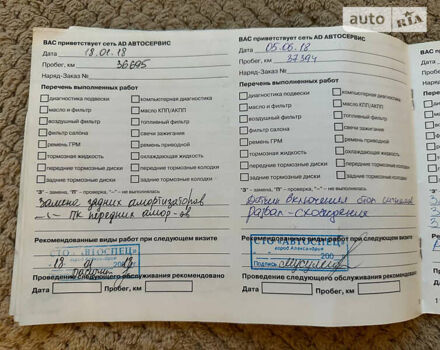 auto RIA
ВАС приветствует сеть AD АВТОСЕРВИС
Дата 18.01.18
Пробег, км 36695
Наряд-Заказ №
Перечень выполненных работ
диагностика подвески
компьютерная диагностика
масло и фильтр
масло КПП/АКПП
воздушный фильтр
топливный фильтр
фильтр салона
свечи зажигания
ремень ГРМ
ремень приводной
тормозная жидкость
охлаждающая жидкость
передние тормозные диски
передние тормозные колодки
задние тормозные диски
задние тормозные колодки
"З" - замена, "П" - проверка, "–" - не выполнялась
Замена задних амортизаторов
-"- ПК передних амор-ов
Рекомендованные виды работ при следующем визите
СТО «АВТОСПЕЦ»
18 01 200
Проведение следующего обслуживания рекомендовано
Дата
Пробег, км
ВАС приветствует сеть AD АВТОСЕРВИС
Дата 05.06.18
Пробег, км 37394
Наряд-Заказ №
Перечень выполненных работ
диагностика подвески
компьютерная диагностика
масло и фильтр
масло КПП/АКПП
воздушный фильтр
топливный фильтр
фильтр салона
свечи зажигания
ремень ГРМ
ремень приводной
тормозная жидкость
охлаждающая жидкость
передние тормозные диски
передние тормозные колодки
задние тормозные диски
задние тормозные колодки
"З" - замена, "П" - проверка, "–" - не выполнялась
включения стоп
Развал-схождения
Рекомендованные виды работ при следующем визите
СТО «АВТОСПЕЦ»
город Александрия
200
Подпись
Проведение следующего обслуживания рекомендовано
Дата
Пробег, км